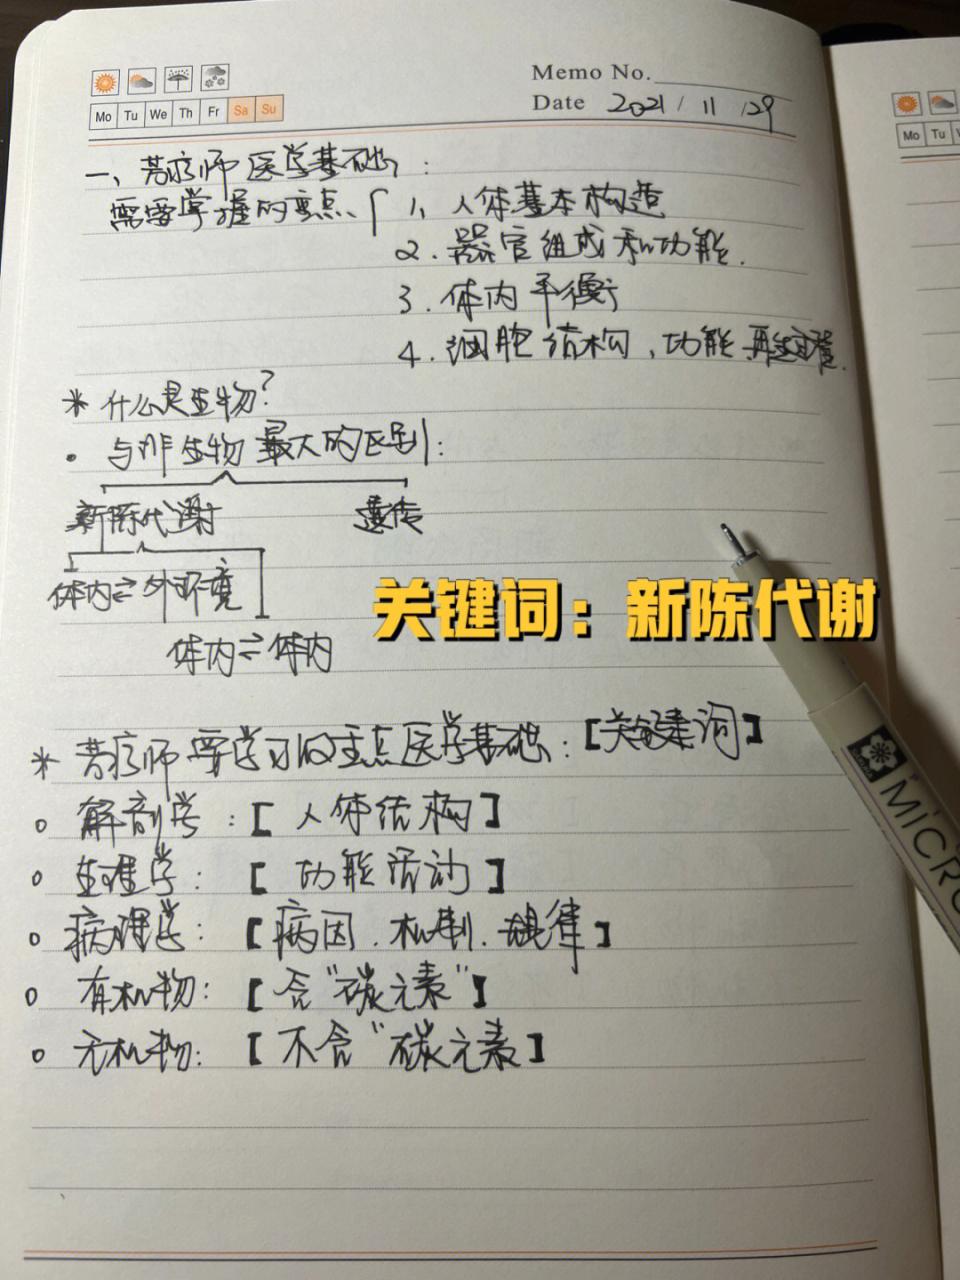 Memo No.
Mo Tu We Th Fr Sa Su
Date 2021/11/29
Mo Tu
一、芳疗师医学基础：
需要掌握的重点、
1、人体基本构造
2.器官组成和功能.
3.体内平衡
4.细胞结构、功能
*什么是生物?
·与非生物最大的区别:
新陈代谢 遗传
体内⇌外环境
体内⇌体内
关键词：新陈代谢
*芳疗师要学习的重点医学基础：【关键词】
○解剖学：【人体结构】
○生理学：【功能活动】
○病理学：【病因.机制.规律】
○有机物：【含"碳元素"】
○无机物：【不含"碳元素】
MICRO